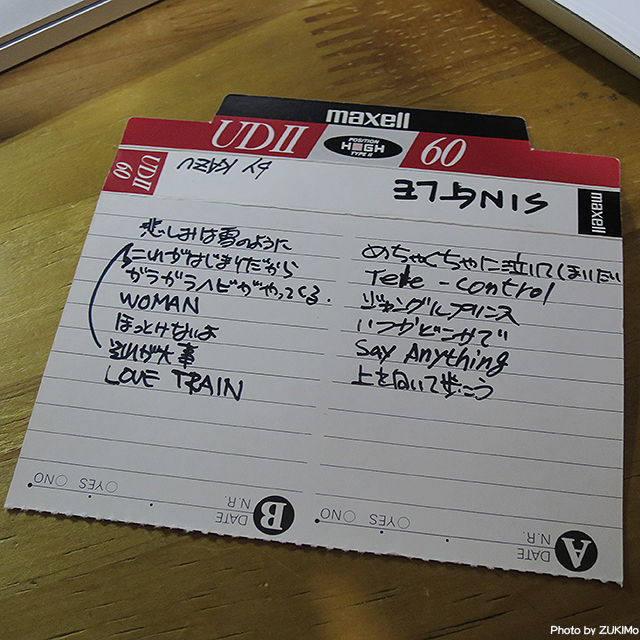 maxell
UDII
POSITION
HIGH
TYPE II
60
UDII
60
by KAZU
SINGLE
maxell
悲しみは雪のように
これがはじまりだから
ガラガラヘビがやってくる.
WOMAN
ほっとけないよ
それが大事
LOVE TRAIN
めちゃくちゃに泣いてしまいたい
TeLe - control
ジャングルプリンス
いつかどこかで
Say Anything
上を向いて歩こう
B
DATE
N.R.
○YES ○NO
A
DATE
N.R.
○YES ○NO
Photo by ZUKIMo